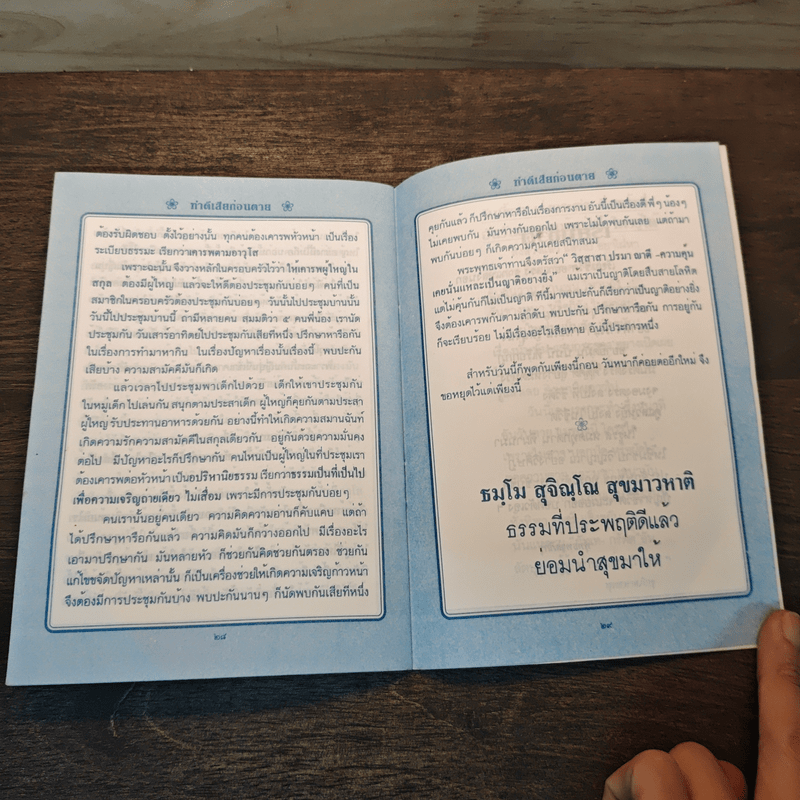 ทำดีเสียก่อนตาย
ต้องรับผิดชอบ ตั้งไว้อย่างนั้น ทุกคนต้องเคารพหัวหน้า เป็นเรื่อง
ระเบียบธรรมะ เรียกว่าเคารพตามอาวุโส
เพราะฉะนั้น จึงวางหลักในครอบครัวไว้ว่า ให้เคารพผู้ใหญ่ใน
สกุล ต้องมีผู้ใหญ่ แล้วจะให้ดีต้องประชุมกันบ่อยๆ คนที่เป็น
สมาชิกในครอบครัวต้องประชุมกันบ่อยๆ วันนั้นไปประชุมบ้านนั้น
วันนี้ไปประชุมบ้านนี้ ถ้ามีหลายคน สมมติว่า ๕ คนพี่น้อง เรานัด
ประชุมกัน วันเสาร์อาทิตย์ไปประชุมกันเสียทีหนึ่ง ปรึกษาหารือกัน
ในเรื่องการทำมาหากิน ในเรื่องปัญหาเรื่องนั้นเรื่องนี้ พบปะกัน
เสียบ้าง ความสามัคคีมันก็เกิด
แล้วเวลาไปประชุมพาเด็กไปด้วย เด็กให้เขาประชุมกัน
ในหมู่เด็ก ไปเล่นกัน สนุกตามประสาเด็ก ผู้ใหญ่ก็คุยกันตามประสา
ผู้ใหญ่ รับประทานอาหารด้วยกัน อย่างนี้ทำให้เกิดความสมานฉันท์
เกิดความรักความสามัคคีในสกุลเดียวกัน อยู่กันด้วยความมั่นคง
ต่อไป มีปัญหาอะไรก็ปรึกษากัน คนไหนเป็นผู้ใหญ่ในที่ประชุมเรา
ต้องเคารพต่อหัวหน้าเป็นอปริหานิยธรรม เรียกว่าธรรมเป็นที่เป็นไป
เพื่อความเจริญถ่ายเดียว ไม่เสื่อม เพราะมีการประชุมกันบ่อยๆ
คนเรานั้นอยู่คนเดียว ความคิดความอ่านก็คับแคบ แต่ถ้า
ได้ปรึกษาหารือกันแล้ว ความคิดมันก็กว้างออกไป มีเรื่องอะไร
เอามาปรึกษากัน มันหลายหัว ก็ช่วยกันคิดช่วยกันตรอง ช่วยกัน
แก้ไขขจัดปัญหาเหล่านั้น ก็เป็นเครื่องช่วยให้เกิดความเจริญก้าวหน้า
จึงต้องมีการประชุมกันบ้าง พบปะกันนานๆ ก็นัดพบกันเสียทีหนึ่ง
๒๘
ทำดีเสียก่อนตาย
คุยกันแล้ว ก็ปรึกษาหารือในเรื่องการงาน อันนี้เป็นเรื่องดี พี่ๆ น้องๆ
ไม่เคยพบกัน มันห่างกันออกไป เพราะไม่ได้พบกันเลย แต่ถ้ามา
พบกันบ่อยๆ ก็เกิดความคุ้นเคยสนิทสนม
พระพุทธเจ้าท่านจึงตรัสว่า" วิสฺสาสา ปรมา ญาติ -ความคุ้น
เคยนั่นแหละเป็นญาติอย่างยิ่ง" แม้เราเป็นญาติโดยสืบสายโลหิต
แต่ไม่คุ้นกันก็ไม่เป็นญาติ ทีนี้มาพบปะกันก็เรียกว่าเป็นญาติอย่างยิ่ง
จึงต้องเคารพกันตามลำดับ พบปะกัน ปรึกษาหารือกัน การอยู่กัน
ก็จะเรียบร้อย ไม่มีเรื่องอะไรเสียหาย อันนี้ประการหนึ่ง
สำหรับวันนี้ก็พูดกันเพียงนี้ก่อน วันหน้าก็ค่อยต่ออีกใหม่ จึง
ขอหยุดไว้แต่เพียงนี้
ธมฺโม สุจิณฺโณ สุขมาวหาติ
ธรรมที่ประพฤติดีแล้ว
ย่อมนำสุขมาให้
๒๙